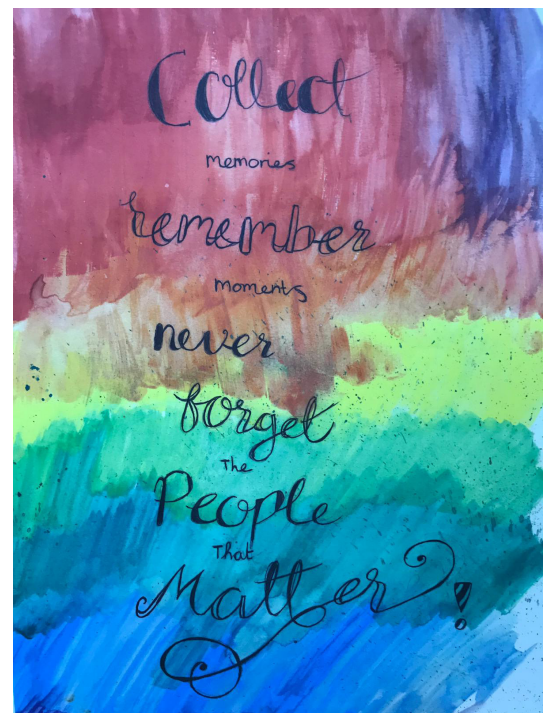 Collect
memories
remember
moments
never
forget
The
People
That
Matter!